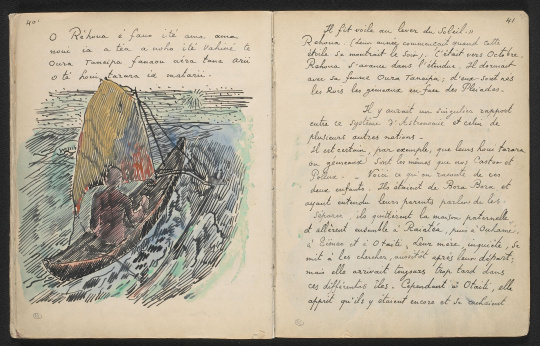 40
O Réhoua é fano ité ama ama
noué ia a téa a noho ité Vahiné té
Oura Tanéipa fanaou aéra tana arii
O té houi tarara ia matarii.
41
Il fit voile au lever du Soleil.
Rehoua. (dont année commençait quand cette
étoile se montrait le soir). C'était vers Octobre.
Rehoua s'avance dans l'étendue. Il dormait
avec sa femme Oura Tanéipa; d'eux sont nés
les Rois les gémeaux en face des Pléiades.
Il y aurait un singulier rapport
entre ce système d'Astronomie et celui de
plusieurs autres nations.
Il est certain, par exemple, que leurs houi tarara
ou gémeaux) sont les mêmes que nos Castor et
Pollux. Voici ce qu'on raconte de ces
deux enfants. Ils étaient de Bora Bora, et
ayant entendu leurs parents parler de les
séparer, ils quittèrent la maison paternelle
et allèrent ensemble à Raiatéa, puis à Ouhamé,
à Eiméo et à Otaïti. Leur mère, inquiète, se
mit à les chercher, aussitôt après leur départ;
mais elle arrivait toujours trop tard dans
ces différentes îles. Cependant à Otaïti, elle
apprit qu'ils y étaient encore et se cachaient